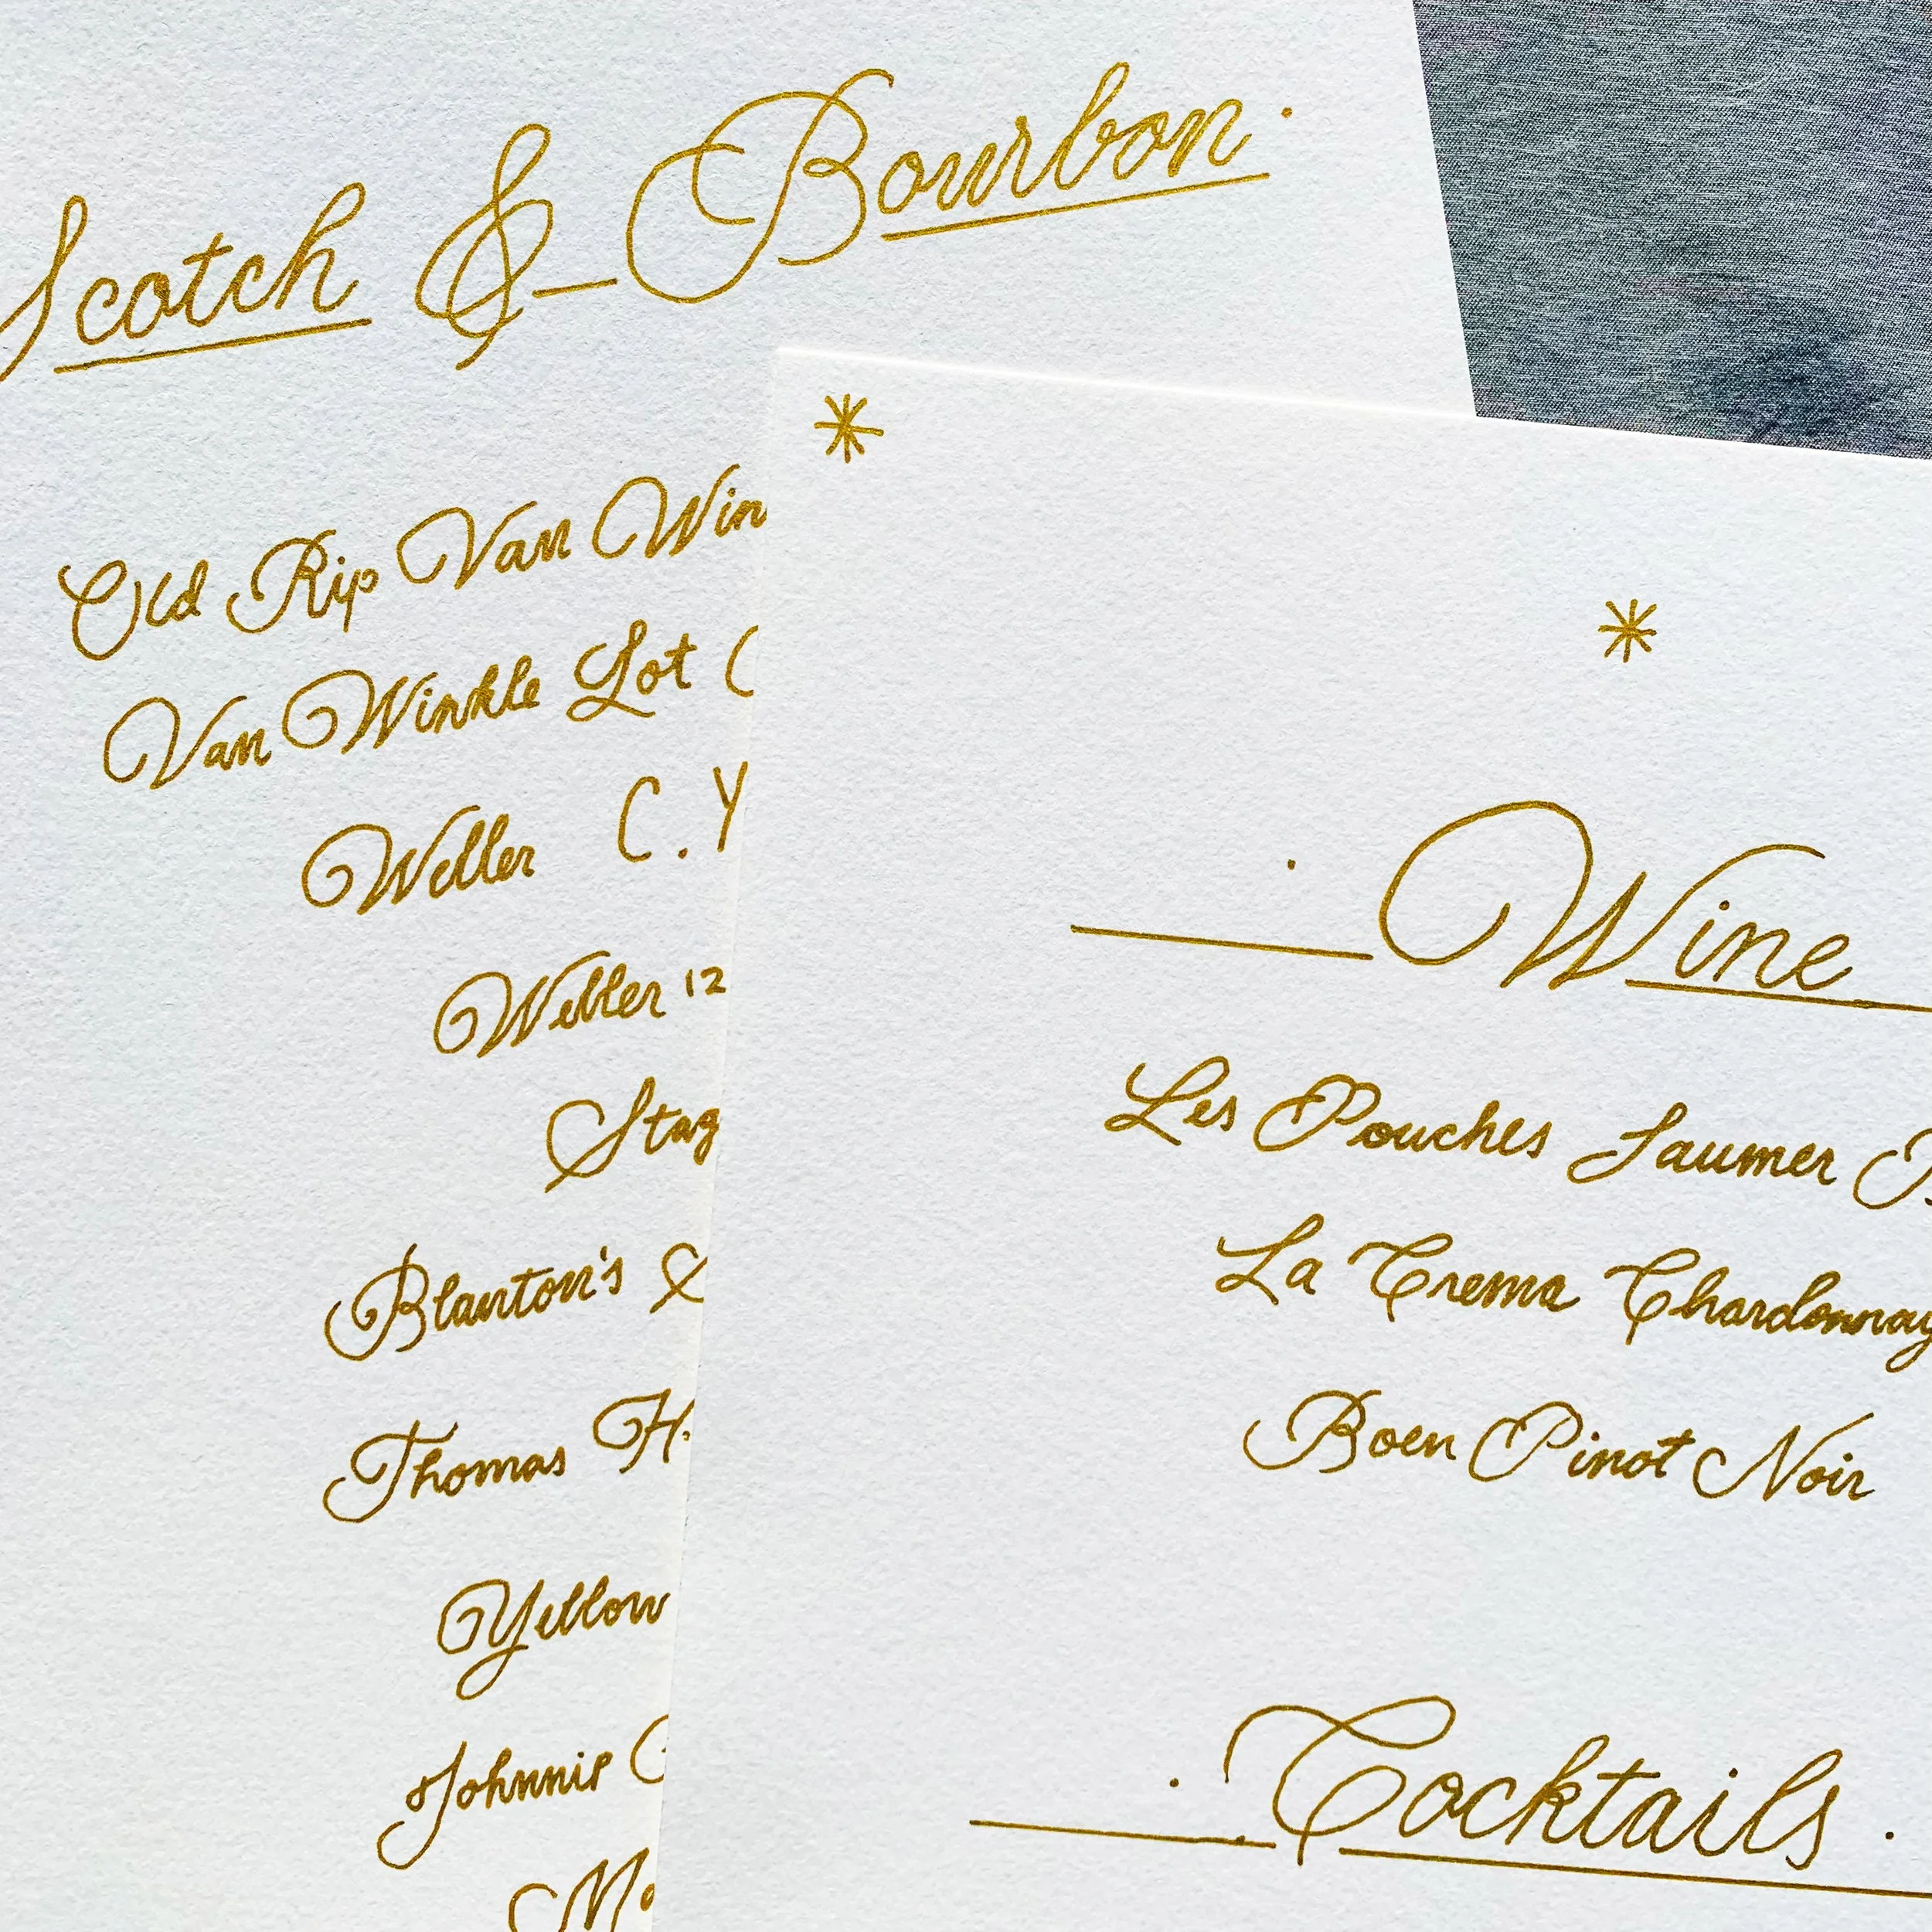 Scotch & Bourbon.
Old Rip Van Win
Van Winkle Lot
Weller C.Y
Weller 12
Stag
Blanton's
Thomas H.
Yellow
Johnnie
Wine
Les Pouches Saumer
La Crema Chardonnay
Boen Pinot Noir
Cocktails